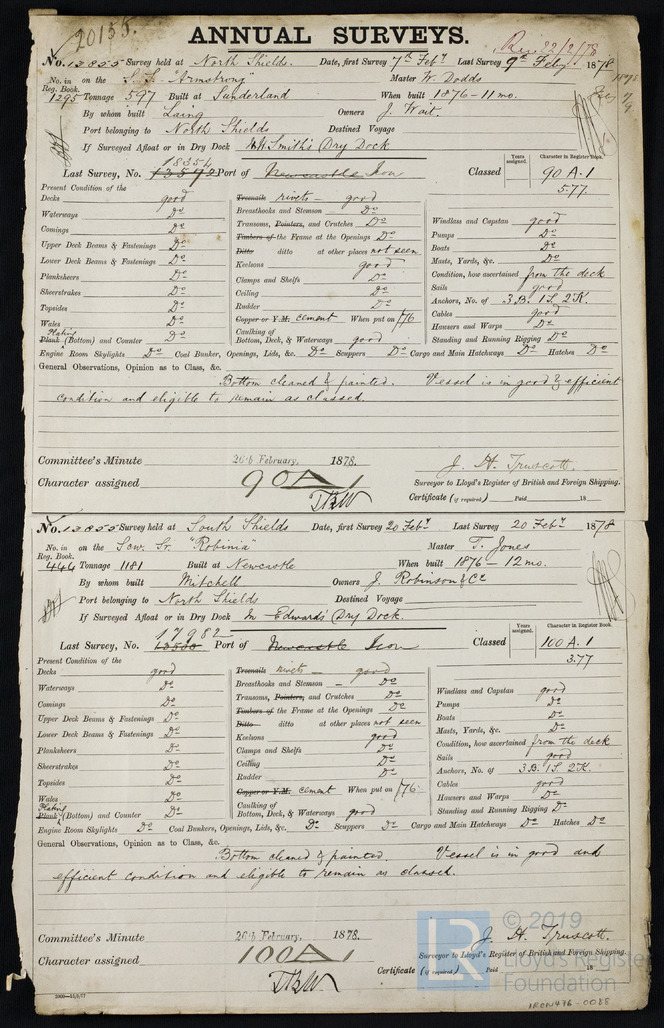 20155
ANNUAL SURVEYS.
Rec. 22/2/78
No. 13855 Survey held at North Shields. Date, first Survey 7th Feby Last Survey 9th Feby 1878
No. in Reg. Book. on the S.S. "Armstrong" Master W. Dodds
1295 Tonnage 597 Built at Sunderland When built 1876 - 11 mo.
By whom built Laing Owners J. Wait.
Port belonging to North Shields Destined Voyage
If Surveyed Afloat or in Dry Dock Smith's Dry Dock
18354
Last Survey, No. Port of Newcastle Iron Classed Years assigned. Character in Register Book. 90 A.1
5.77.
Present Condition of the
Decks good Treenails rivets - good
Waterways Do Breasthooks and Stemson Do Windlass and Capstan good
Comings Do Transoms, Pointers, and Crutches Do Pumps Do
Upper Deck Beams & Fastenings Do Timbers of the Frame at the Openings Do Boats Do
Lower Deck Beams & Fastenings Do Ditto ditto at other places not seen Masts, Yards, &c. Do
Planksheers Do Keelsons good Condition, how ascertained from the deck
Sheerstrakes Do Clamps and Shelfs Do Sails good
Topsides Do Ceiling Do Anchors, No. of 3.B. 1S. 2K.
Wales Do Rudder Do Cables good
Plating Plank (Bottom) and Counter Do Copper or Y.M. cement When put on /76 Hawsers and Warps Do
Caulking of Bottom, Deck, & Waterways good Standing and Running Rigging Do
Engine Room Skylights Do Coal Bunker, Openings, Lids, &c. Do Scuppers Do Cargo and Main Hatchways Do Hatches Do
General Observations, Opinion as to Class, &c.
Bottom cleaned & painted. Vessel is in good & efficient
condition and eligible to remain as classed.
Committee's Minute 26th February, 1878. J. H. Truscott.
Character assigned 90A1 Surveyor to Lloyd's Register of British and Foreign Shipping.
Certificate (if required) Paid 18
No. 13855 Survey held at South Shields Date, first Survey 20 Feby Last Survey 20 Feby 1878
No. in Reg. Book. on the Scw. Sr. "Robinia" Master T. Jones
444 Tonnage 1181 Built at Newcastle When built 1876 - 12 mo.
By whom built Mitchell Owners J. Robinson & Co
Port belonging to North Shields Destined Voyage
If Surveyed Afloat or in Dry Dock In Edwards' Dry Dock.
17982
Last Survey, No. Port of Newcastle Iron Classed Years assigned. Character in Register Book. 100 A.1
3.77
Present Condition of the
Decks good Treenails rivets - good
Waterways Do Breasthooks and Stemson - Do Windlass and Capstan good
Comings Do Transoms, Pointers, and Crutches Do Pumps Do
Upper Deck Beams & Fastenings Do Timbers of the Frame at the Openings Do Boats Do
Lower Deck Beams & Fastenings Do Ditto ditto at other places not seen Masts, Yards, &c. Do
Planksheers Do Keelsons good Condition, how ascertained from the deck
Sheerstrakes Do Clamps and Shelfs Do Sails good
Topsides Do Ceiling Do Anchors, No. of 3.B. 1S. 2K.
Wales Do Rudder Do Cables good
Plating Plank (Bottom) and Counter Do Copper or Y.M. cement When put on /76 Hawsers and Warps Do
Caulking of Bottom, Deck, & Waterways good Standing and Running Rigging Do
Engine Room Skylights Do Coal Bunkers, Openings, Lids, &c. Do Scuppers Do Cargo and Main Hatchways Do Hatches Do
General Observations, Opinion as to Class, &c.
Bottom cleaned & painted. Vessel is in good and
efficient condition and eligible to remain as classed.
Committee's Minute 26th February, 1878. J. H. Truscott.
Character assigned 100A1 Surveyor to Lloyd's Register of British and Foreign Shipping.
Certificate (if required) Paid 18
LR © 2019 Lloyd's Register Foundation
IRON476-0088